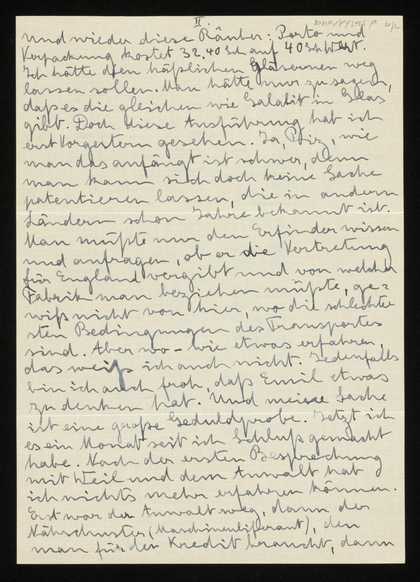 II.
und wieder diese Räuber: Porto und
Verpackung kostet 32.40 Sch auf 40 Sch Wert.
Ich hätte den häßlichen Gläsernen weg
lassen sollen. Man hätte nur zu sagen,
daß es die gleichen wie Galalit in Glas
gibt. Doch diese Ausführung hab ich
erst vorgestern gesehen. Ja, Pfiz, wie
man das anfängt ist schwer, denn
man kann sich doch keine Sache
patentieren lassen, die in andern
Ländern schon Jahre bekannt ist.
Man müßte nun den Erfinder wissen
und anfragen, ob er die Vertretung
für England vergibt und von welcher
Fabrik man beziehen müßte, ge=
wiß nicht von hier, wo die schlechte
sten Bedingungen des Transportes
sind. Aber wo – wie etwas erfahren,
das weiß ich auch nicht. Jedenfalls
bin ich auch froh, daß Emil etwas
zu denken hat. Und meine Sache
ist eine große Geduldprobe. Jetzt ist
es ein Monat seit ich Schluß gemacht
habe. Nach der ersten Besprechung
mit Weil und dem Anwalt hab
ich nichts mehr erfahren können.
Erst war der Anwalt weg, dann der
Nähschuster (Maschinenlieferant), den
man für den Kredit braucht, dann